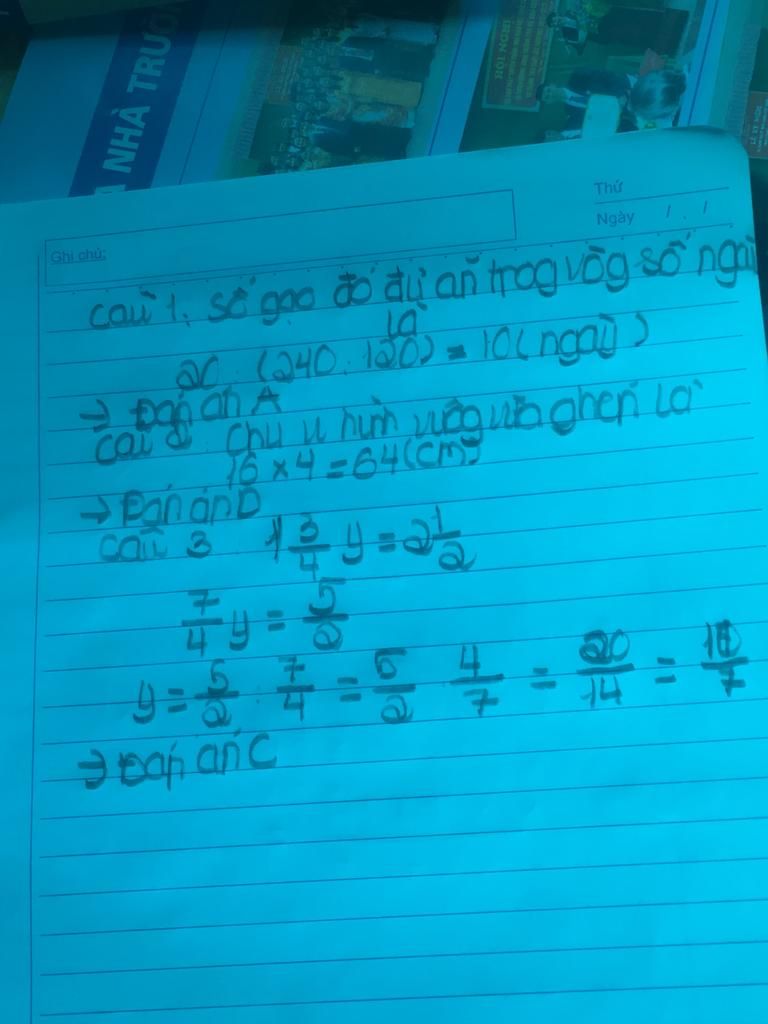 NHÀ TRƯỜ
HỘI NGHỊ
Thứ
Ngày / . /
Ghi chú:
Câu 1. Số gạo đó đủ ăn trog vòg số ngày
là
20 : (240 : 120) = 10 (ngày)
→ Đáp án A
Câu 2: Chu vi hình vuôg vừa ghép là
16 × 4 = 64 (cm)
→ Đáp án D
Câu 3 1 3/4 y = 2 1/2
7/4 y = 5/2
y = 5/2 : 7/4 = 5/2 . 4/7 = 20/14 = 10/7
→ Đáp án C